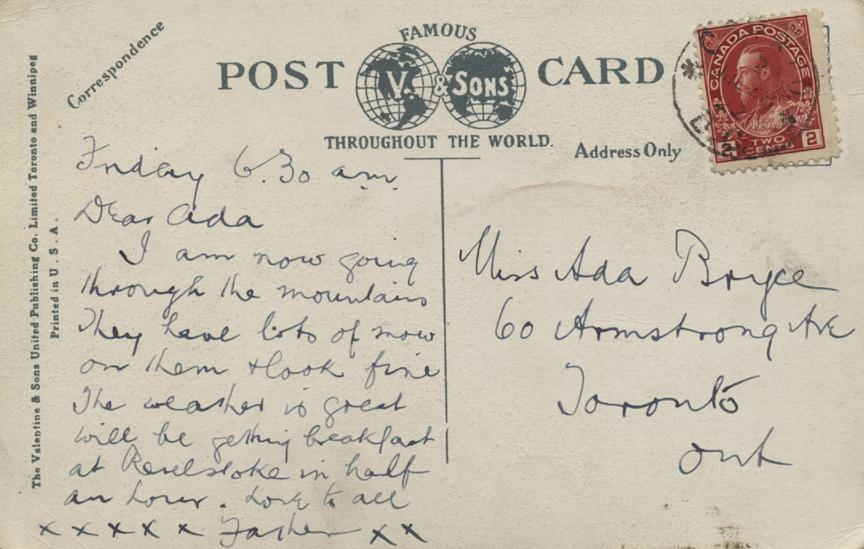 The Valentine & Sons United Publishing Co. Limited Toronto and Winnipeg
Printed in U. S. A.
Correspondence
FAMOUS
POST V. & SONS CARD
THROUGHOUT THE WORLD.
Address Only
CANADA POSTAGE
2 TWO CENTS 2
Friday 6.30 a.m.
Dear Ada
I am now going
through the mountains
They have lots of snow
on them & look fine
The weather is great
will be getting breakfast
at Revelstoke in half
an hour. Love to all
x x x x x Father x x
Miss Ada Bryce
60 Armstrong Ave
Toronto
Ont